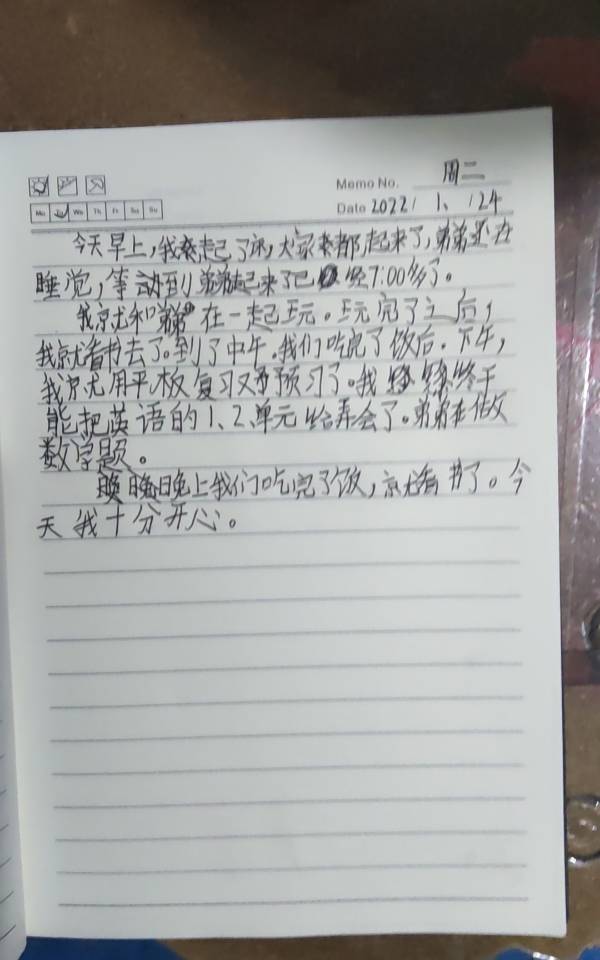 Memo No. 周二
Mo Tu We Th Fr Sa Su
Date 2022/1、/24
今天早上,我起了床,大家都起来了,弟弟还在
睡觉,等到弟弟起来了已经7:00多了。
我就和弟弟在一起玩。玩完了之后,
我就看书去了。到了中午,我们吃完了饭后.下午,
我就用平板复习又预习了。我终于
能把英语的1、2、单元给弄会了。弟弟在做
数学题。
晚上我们吃完了饭,就看书了。今
天我十分开心。